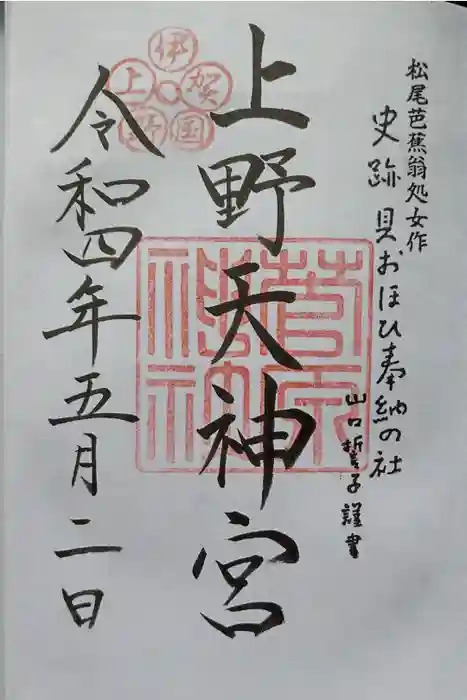 松尾芭蕉翁処女作
史跡 貝おほひ奉納の社
山口誓子謹書
上野天神宮
伊賀国上野
菅原神社
令和四年五月二日